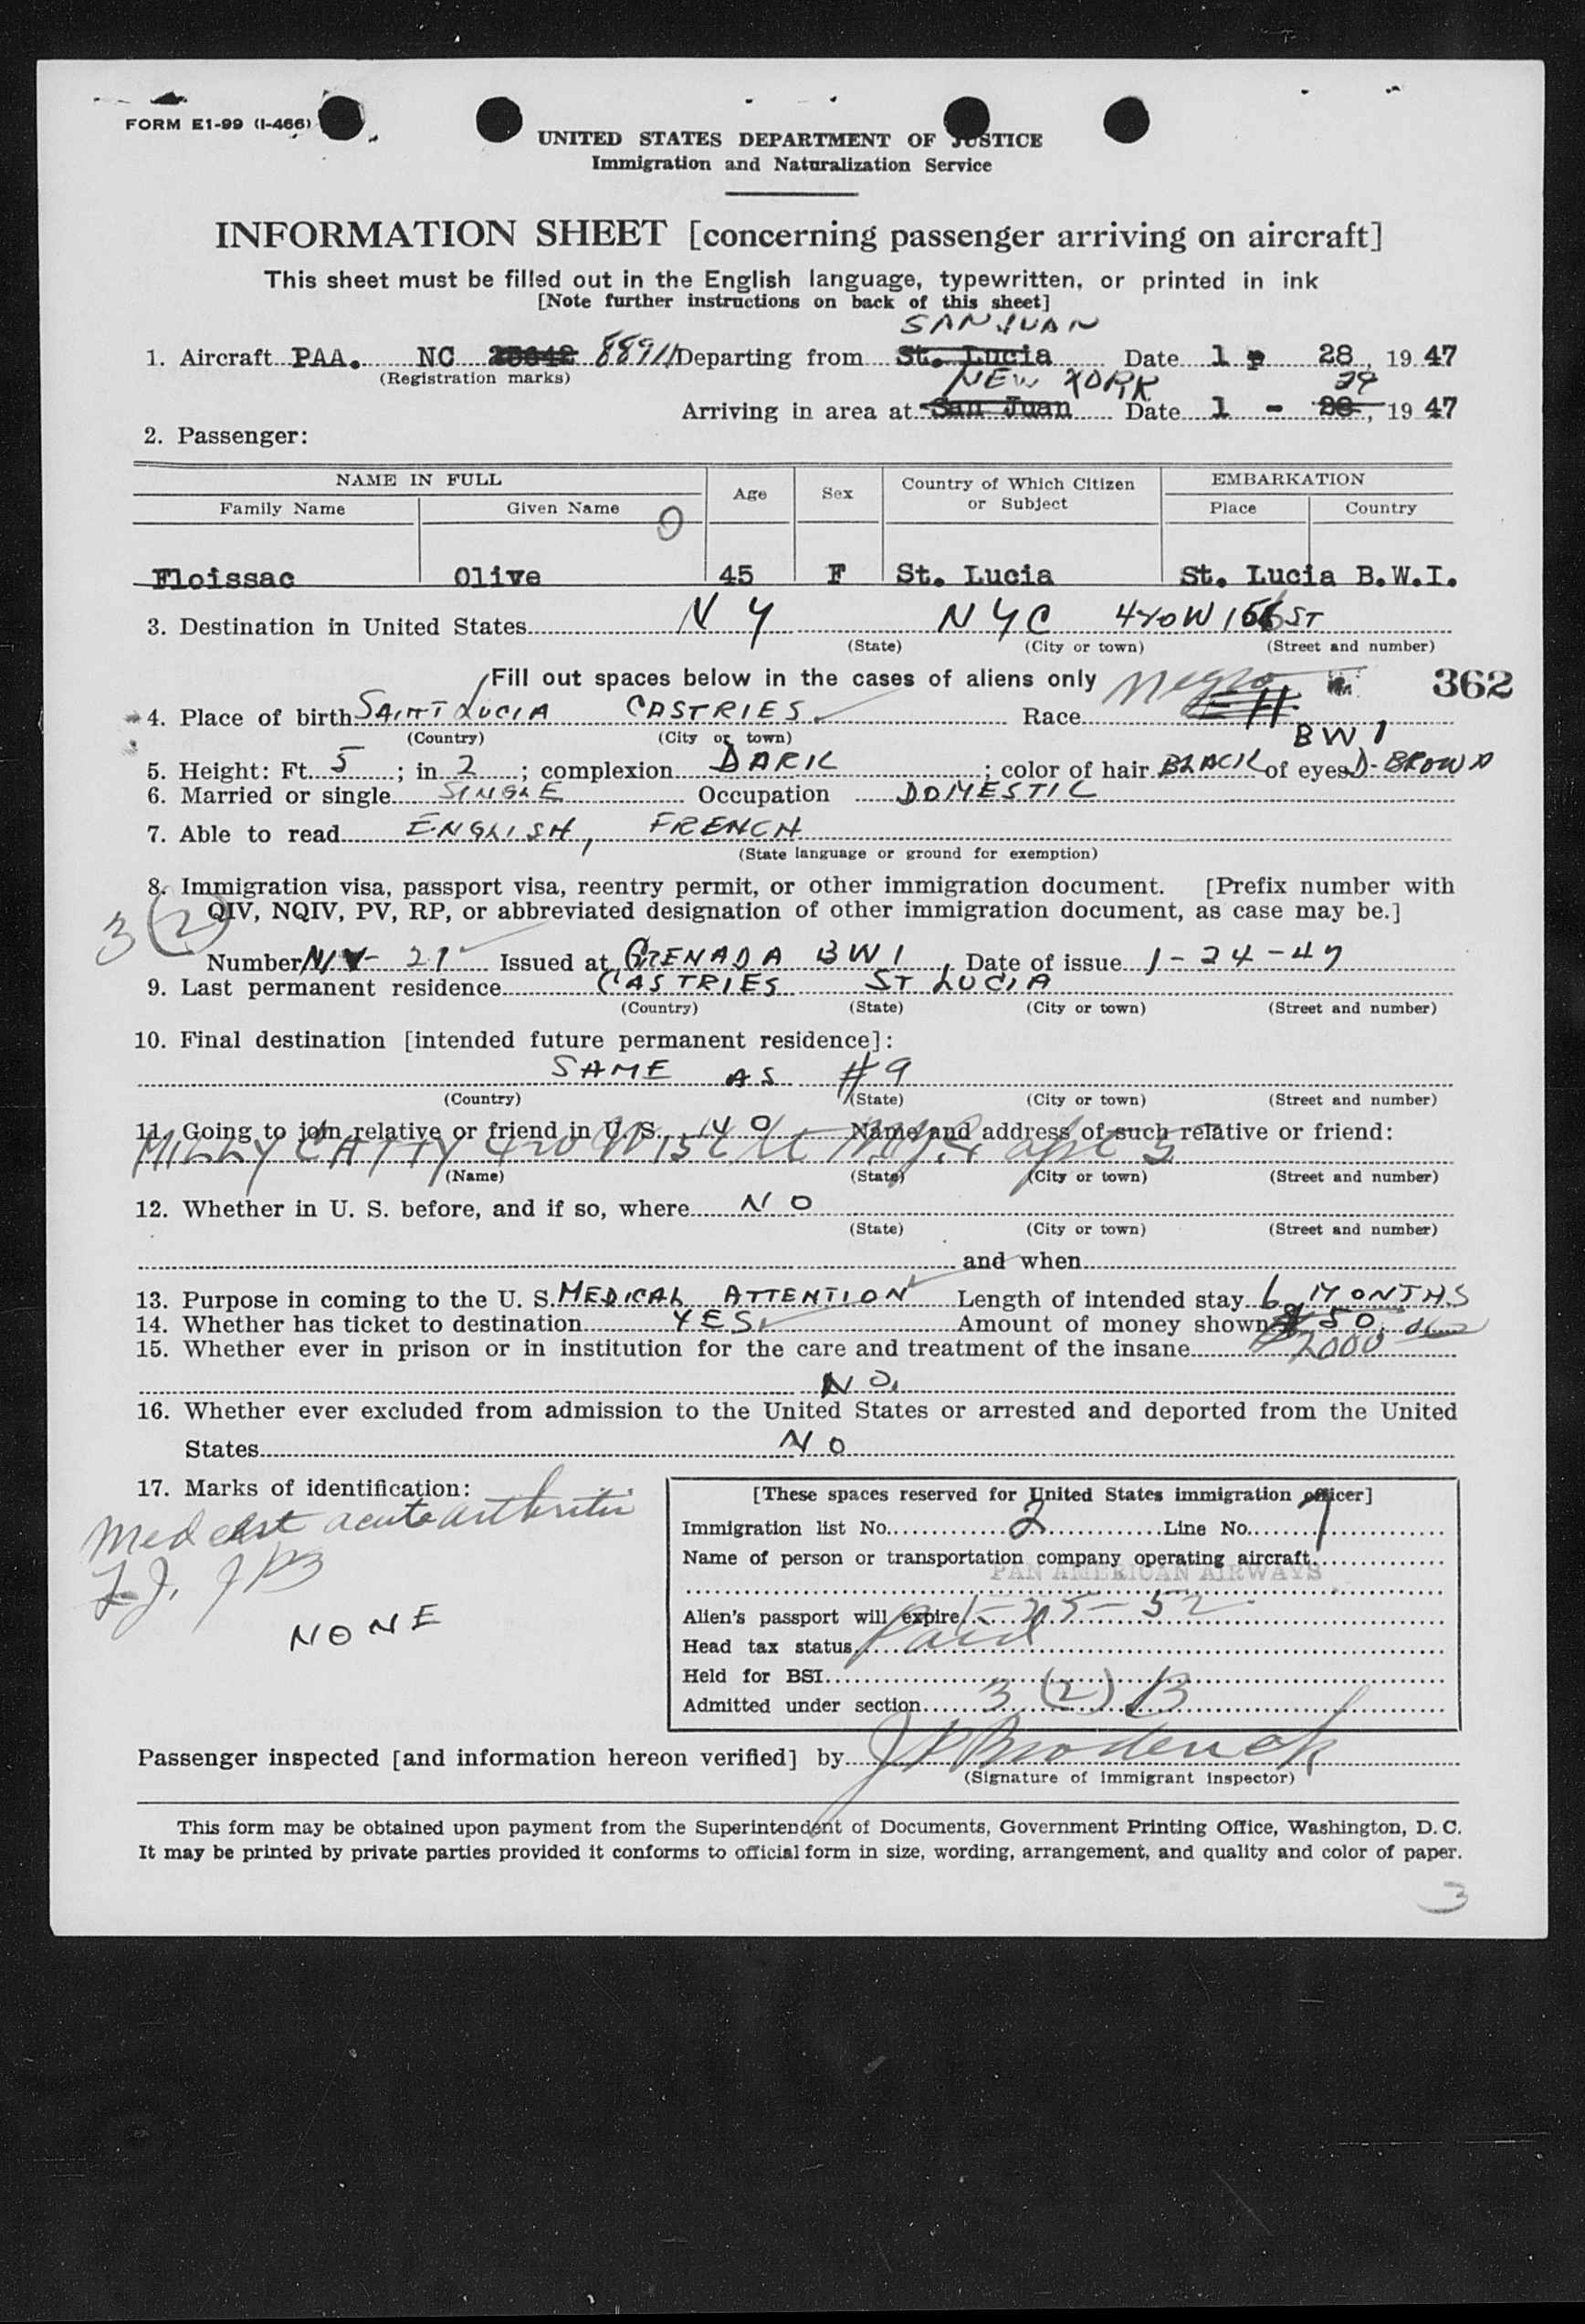 FORM E1-99 (I-466)
UNITED STATES DEPARTMENT OF JUSTICE
Immigration and Naturalization Service
INFORMATION SHEET [concerning passenger arriving on aircraft]
This sheet must be filled out in the English language, typewritten, or printed in ink
[Note further instructions on back of this sheet]
SAN JUAN
1. Aircraft PAA. NC 88911 Departing from St. Lucia Date 1 - 28, 19 47
(Registration marks)
NEW YORK 29
Arriving in area at San Juan Date 1 - 28, 19 47
2. Passenger:
NAME IN FULL Age Sex Country of Which Citizen or Subject EMBARKATION
Family Name Given Name Place Country
Floissac Olive 45 F St. Lucia St. Lucia B.W.I.
3. Destination in United States N Y NYC 420 W 156 ST
(State) (City or town) (Street and number)
Fill out spaces below in the cases of aliens only Negro 362
4. Place of birth SAINT LUCIA CASTRIES Race
(Country) (City or town) BWI
5. Height: Ft. 5; in 2; complexion DARK; color of hair BLACK of eyes D-BROWN
6. Married or single SINGLE Occupation DOMESTIC
7. Able to read ENGLISH, FRENCH
(State language or ground for exemption)
8. Immigration visa, passport visa, reentry permit, or other immigration document. [Prefix number with
QIV, NQIV, PV, RP, or abbreviated designation of other immigration document, as case may be.]
3 (2)
Number NV- 21 Issued at GRENADA BWI, Date of issue 1-24-47
9. Last permanent residence CASTRIES ST LUCIA
(Country) (State) (City or town) (Street and number)
10. Final destination [intended future permanent residence]:
SAME AS #9
(Country) (State) (City or town) (Street and number)
11. Going to join relative or friend in U. S. Name and address of such relative or friend:
MILLY 420 W 156 St NY apt 5
(Name) (State) (City or town) (Street and number)
12. Whether in U. S. before, and if so, where NO
(State) (City or town) (Street and number)
and when
13. Purpose in coming to the U. S. MEDICAL ATTENTION Length of intended stay 6 MONTHS
14. Whether has ticket to destination YES Amount of money shown $ 50
15. Whether ever in prison or in institution for the care and treatment of the insane 2000
NO.
16. Whether ever excluded from admission to the United States or arrested and deported from the United
States NO
17. Marks of identification:
Med cert acute arthritis
JPB
NONE
[These spaces reserved for United States immigration officer]
Immigration list No. 2 Line No. 7
Name of person or transportation company operating aircraft
PAN AMERICAN AIRWAYS
Alien's passport will expire 1-25-52
Head tax status Paid
Held for BSI
Admitted under section 3 (2) B
Passenger inspected [and information hereon verified] by J P Broderick
(Signature of immigrant inspector)
This form may be obtained upon payment from the Superintendent of Documents, Government Printing Office, Washington, D. C.
It may be printed by private parties provided it conforms to official form in size, wording, arrangement, and quality and color of paper.
3